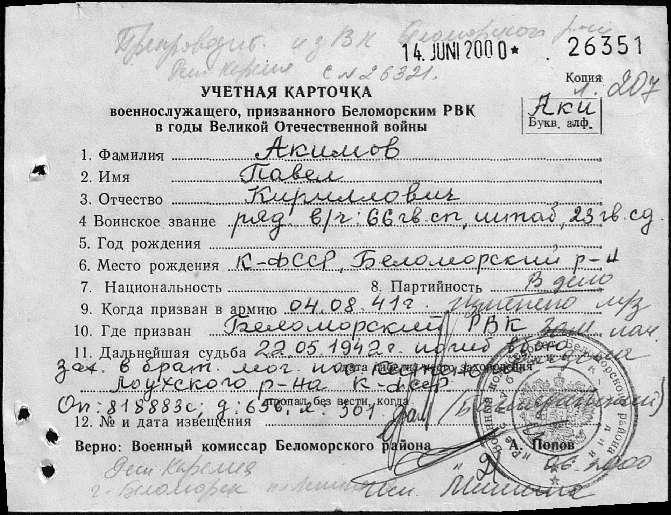 Препроводит. из ВК Беломорского
14. JUNI 2000* 26351
с N 26321.
Копия
л. 207
УЧЕТНАЯ КАРТОЧКА
военнослужащего, призванного Беломорским РВК
в годы Великой Отечественной войны
Аки
Букв. алф.
1. Фамилия Акимов
2. Имя Павел
3. Отчество Кириллович
4 Воинское звание ряд в/ч: 66 гв.сп, штаб, 23 гв.сд.
5. Год рождения
6. Место рождения К-ФССР, Беломорский р-н
7. Национальность 8. Партийность В дело
9. Когда призван в армию 04.08.41г.
10. Где призван Беломорский РВК
11. Дальнейшая судьба 22.05.1942г погиб
зах. в брат. мог. пос.
Лоухского р-на К-ФССР
пропал без вести, когда
Оп: 818883с, д: 656, л: 301
12. № и дата извещения
Верно: Военный комиссар Беломорского района А. Попов
г. Беломорск